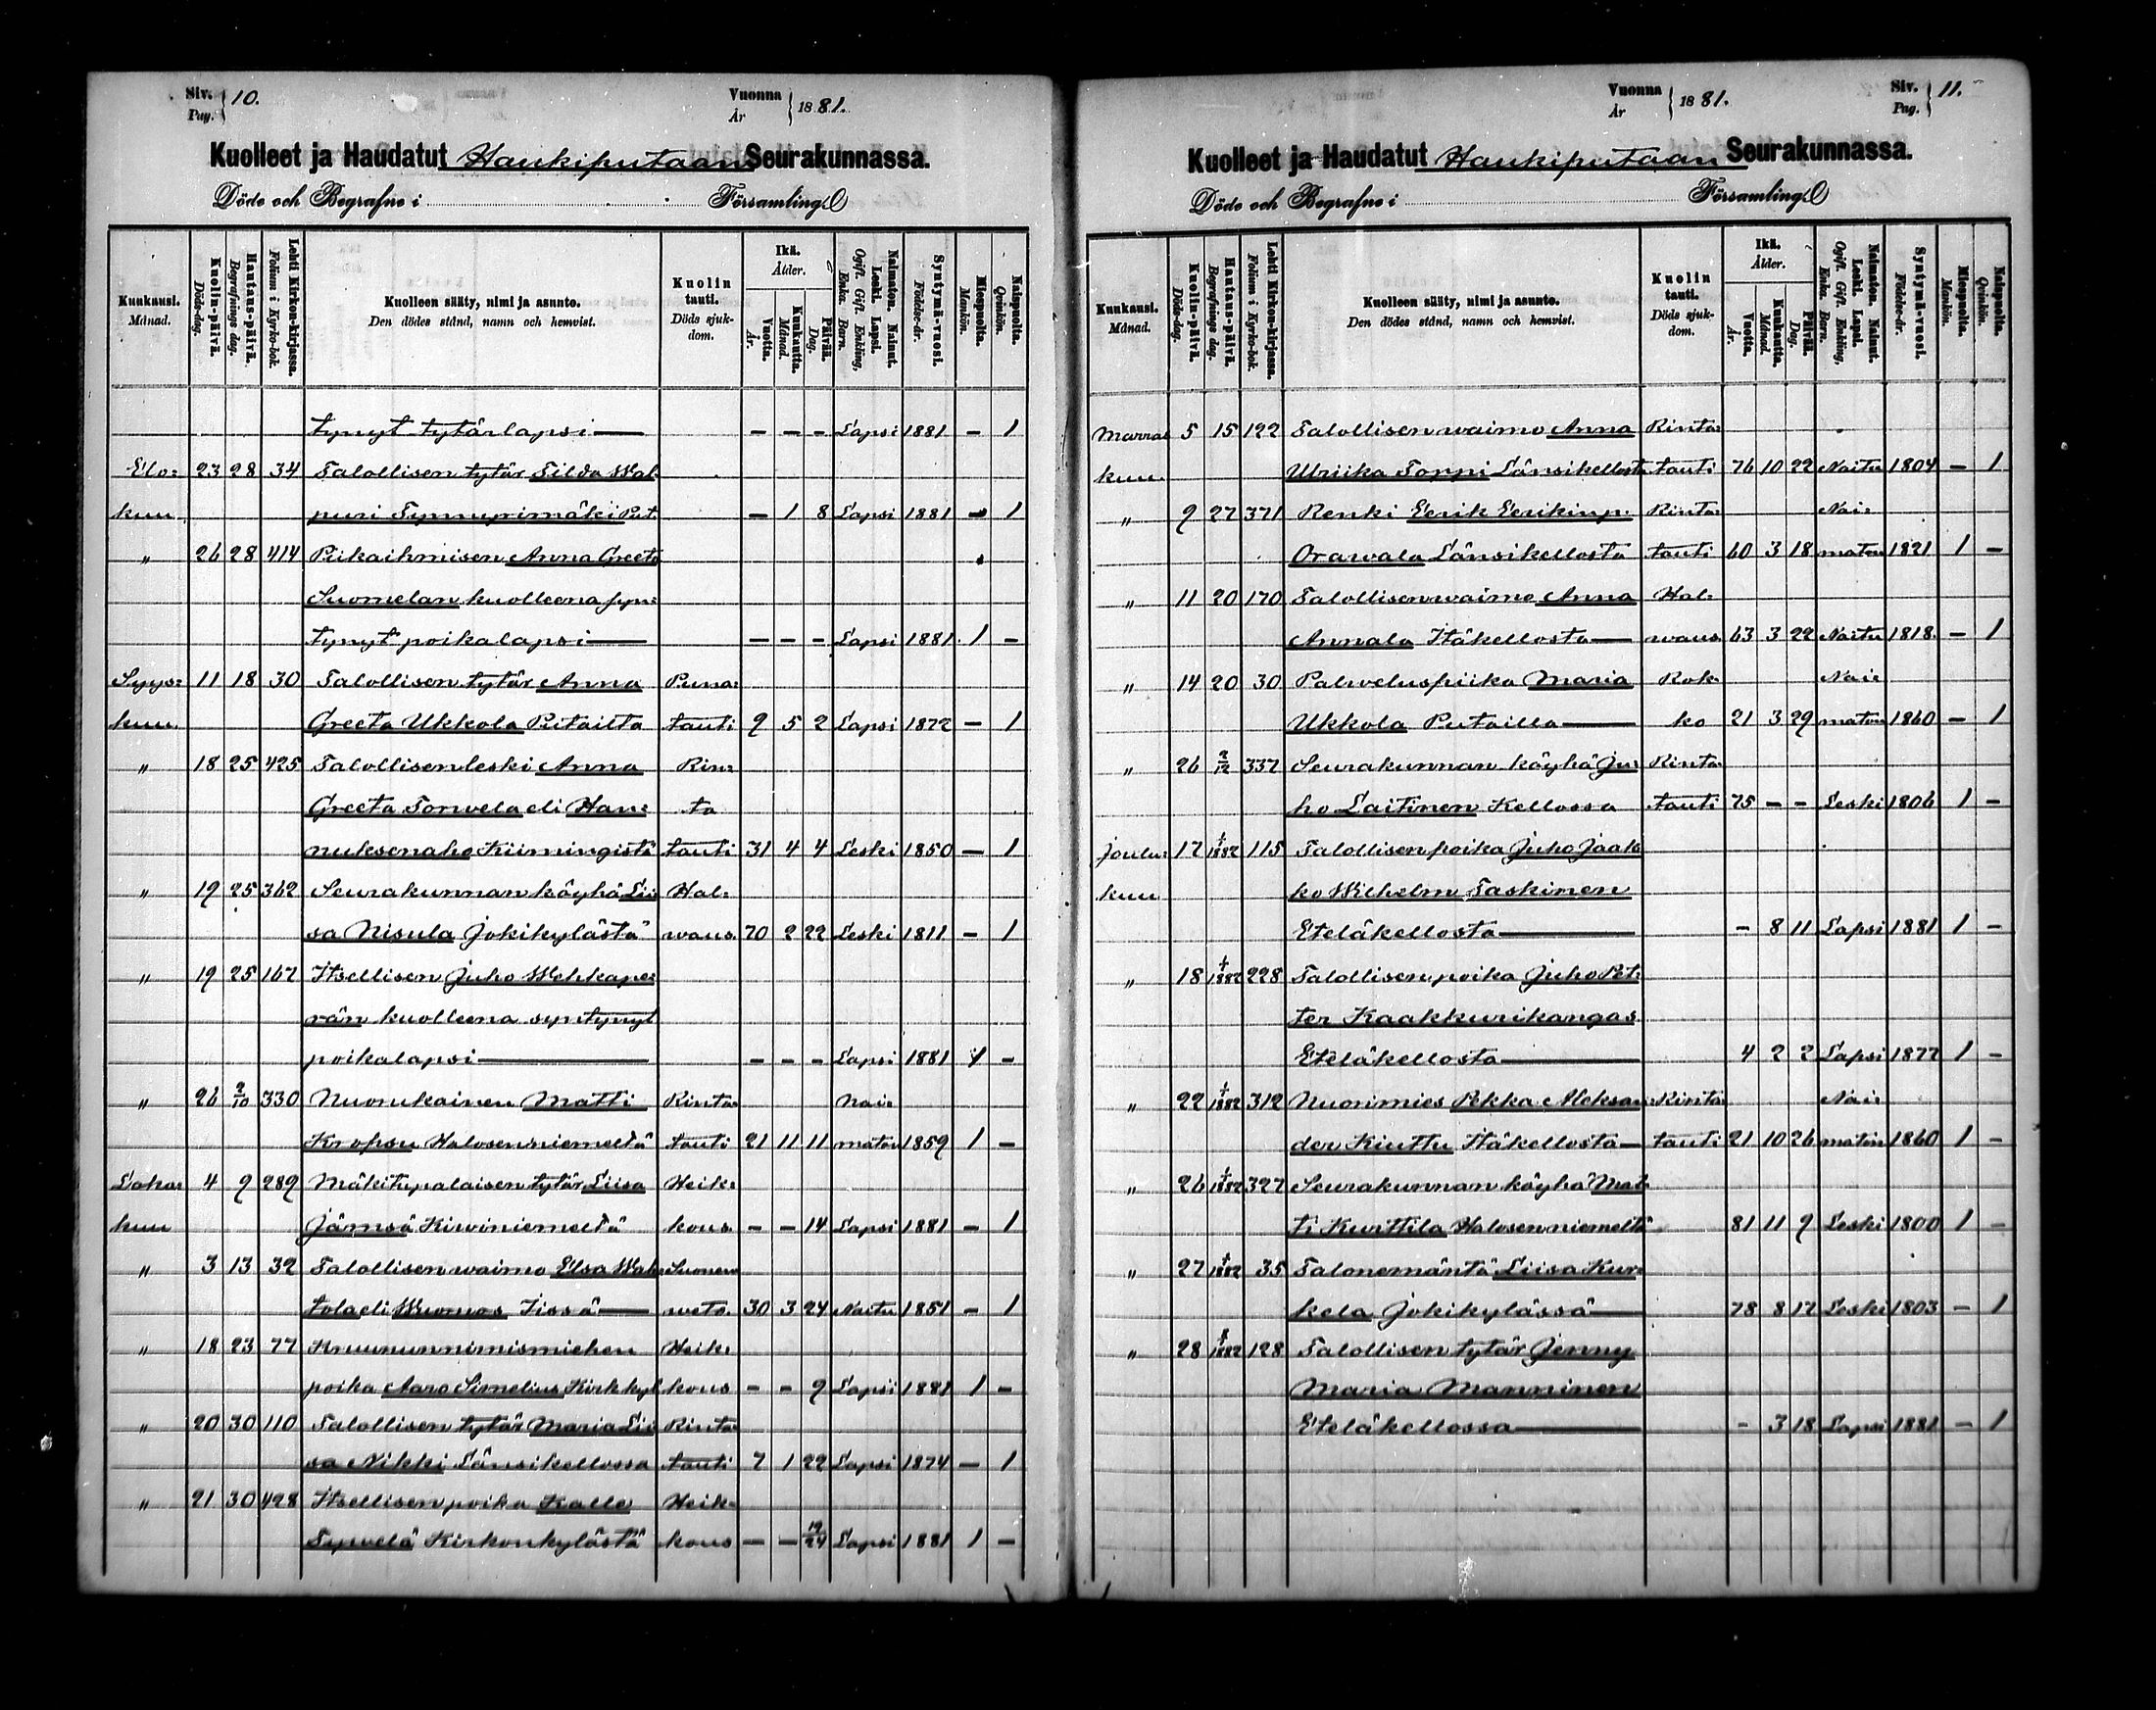 Siv. Pag. 10. Vuonna År 1881.
Kuolleet ja Haudatut Haukiputaan Seurakunnassa.
Döde och Begrafne i Församling.
Kuukausi. Månad. Kuolin-päivä. Döds-dag. Hautaus-päivä. Begrafnings dag. Lehti Kirkon-kirjassa. Folium i Kyrko-bok. Kuolleen sääty, nimi ja asunto. Den dödes stånd, namn och hemvist. Kuolin tauti. Döds sjuk-dom. Ikä. Ålder. Vuotta. År. Kuukautta. Månad. Päivää. Dag. Naimaton. Nainut. Leski. Lapsi. Ogift. Gift. Enkling, Enka. Barn. Syntymä-vuosi. Födelse-år. Miespuolta. Mankön. Naispuolta. Qvinkön.
tynyt tytärlapsi — — — — Lapsi 1881 — 1
Elo= 23 28 34 Talollisen tytär Tilda Wal
kuu puri Tynnyrimäki Put. — 1 8 Lapsi 1881 — 1
" 26 28 414 Piikaihmisen Anna Greeta
Suomelan kuolleena syn=
tynyt poikalapsi — — — — Lapsi 1881 1 —
Syys= 11 18 30 Talollisen tytär Anna Puna=
kuu Greeta Ukkola Putailta tauti 9 5 2 Lapsi 1872 — 1
" 18 25 425 Talollisen leski Anna Rin=
Greeta Torwela eli Han= ta
nuksenaho Kiimingistä tauti 31 4 4 Leski 1850 — 1
" 19 25 362 Seurakunnan köyhä Lii
sa Nisula Jokikylästä Hal= waus. 70 2 22 Leski 1811 — 1
" 19 25 167 Itsellisen Juho Wehkape=
rän kuolleena syntynyt
poikalapsi — — — — Lapsi 1881 1 —
" 26 2/10 330 Nuorukainen Matti Rinta= Nai=
Kropsu Halosenniemeltä tauti 21 11 11 maton 1859 1 —
Loka= 4 9 289 Mäkitupalaisen tytär Liisa Heik=
kuu Jämsä Kiwiniemeltä kous — — 14 Lapsi 1881 — 1
" 3 13 32 Talollisen waimo Elsa Wal= Suonen
tola eli Wuornos Iissä — weto. 30 3 24 Naitu 1851 — 1
" 18 23 77 Kruununnimismiehen Heik=
poika Aaro Simelius Kirkkyl kous — — 9 Lapsi 1881 1 —
" 20 30 110 Talollisen tytär Maria Lii Rinta=
sa Nikki Länsikellossa tauti 7 1 22 Lapsi 1874 — 1
" 21 30 428 Itsellisen poika Kalle Heik=
Sywelä Kirkonkylästä kous — — 19/24 Lapsi 1881 1 —
Vuonna År 1881. Siv. Pag. 11.
Kuolleet ja Haudatut Haukiputaan Seurakunnassa.
Döde och Begrafne i Församling.
Kuukausi. Månad. Kuolin-päivä. Döds-dag. Hautaus-päivä. Begrafnings dag. Lehti Kirkon-kirjassa. Folium i Kyrko-bok. Kuolleen sääty, nimi ja asunto. Den dödes stånd, namn och hemvist. Kuolin tauti. Döds sjuk-dom. Ikä. Ålder. Vuotta. År. Kuukautta. Månad. Päivää. Dag. Naimaton. Nainut. Leski. Lapsi. Ogift. Gift. Enkling, Enka. Barn. Syntymä-vuosi. Födelse-år. Miespuolta. Mankön. Naispuolta. Qvinkön.
Marras 5 15 122 Talollisen waimo Anna Rinta=
kuu. Ulriika Torppi Länsikellosta tauti 76 10 22 Naitu 1804 — 1
" 9 27 371 Renki Eerik Eerikinp. Rinta= Nai=
Orawala Länsikellosta tauti 60 3 18 maton 1821 1 —
" 11 20 170 Talollisen waimo Anna Hal=
Annala Itäkellosta — waus. 63 3 22 Naitu 1818. — 1
" 14 20 30 Palweluspiika Maria Rok Nai=
Ukkola Putailla — ko 21 3 29 maton 1860 — 1
" 26 2/12 337 Seurakunnan köyhä Ju= Rinta=
ho Laitinen Kellossa tauti 75 — — Leski 1806 1 —
Joulu= 17 1/1 1882 115 Talollisen poika Juho Jaak
kuu ko Wilhelm Taskinen
Eteläkellosta — — 8 11 Lapsi 1881 1 —
" 18 1/1 1882 228 Talollisen poika Juho Pet=
ter Kaakkurikangas
Eteläkellosta — 4 2 2 Lapsi 1877 1 —
" 22 1/1 1882 312 Nuorimies Pekka Aleksan= Rinta= Nai=
der Kiuttu Itäkellosta — tauti 21 10 26 maton 1860 1 —
" 26 1/1 1882 327 Seurakunnan köyhä Mat=
ti Kurttila Halosenniemeltä 81 11 9 Leski 1800 1 —
" 27 1/1 1882 35 Talonemäntä Liisa Kur=
kela Jokikylässä — 78 8 17 Leski 1803 — 1
" 28 1882 128 Talollisen tytär Jenny
Maria Manninen
Eteläkellossa — — 3 18 Lapsi 1881 — 1